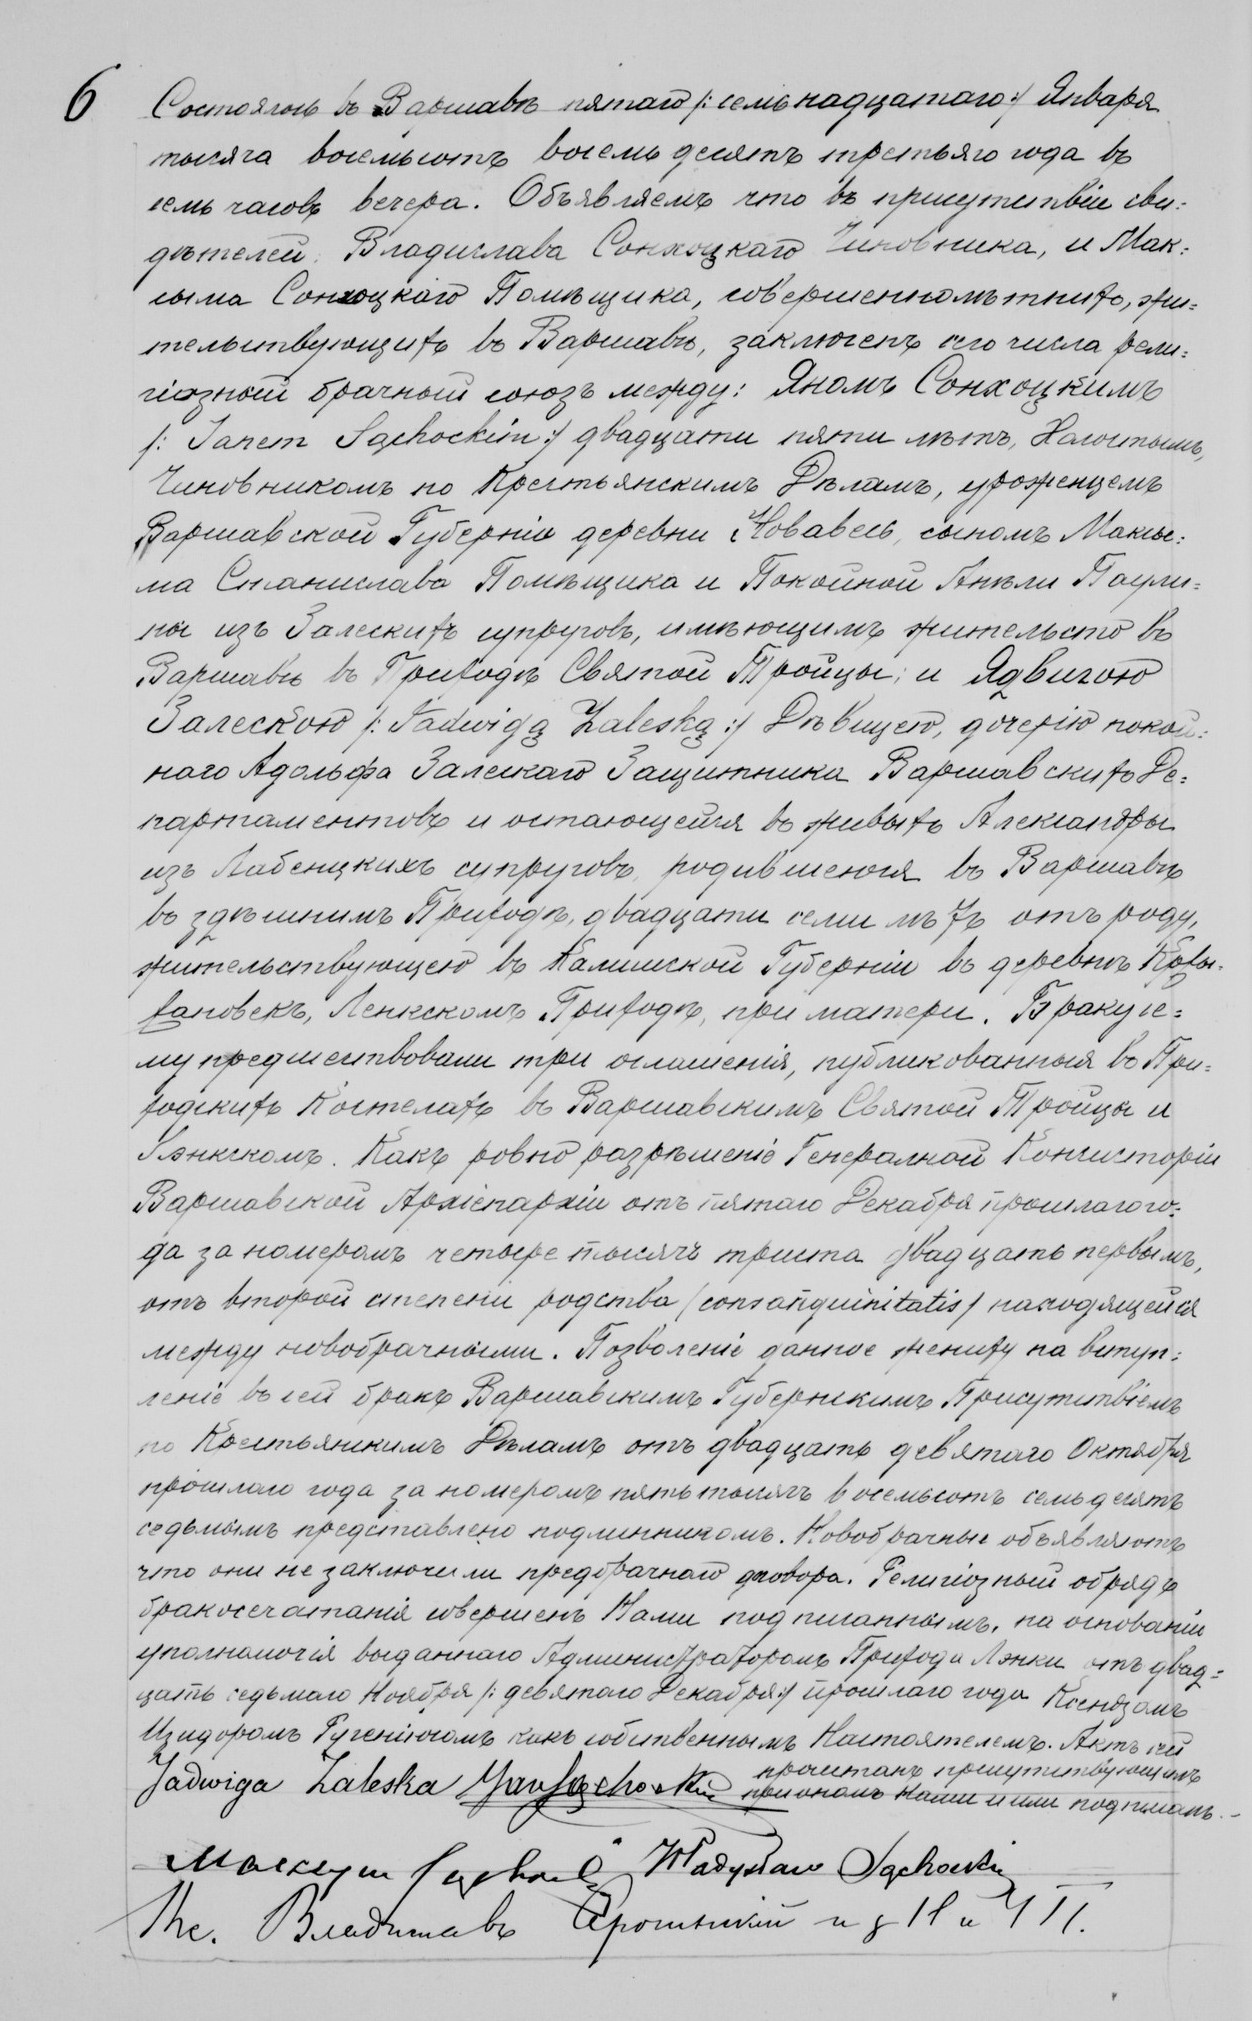 6 Состоялось въ Варшавѣ пятаго /: семьнадцатаго :/ Января
тысяча восемьсотъ восемьдесятъ третьяго года въ
семь часовъ вечера. Объявляемъ что въ присутствіи сви:
дѣтелей. Владислава Сонхоцкаго Чиновника, и Мак:
сыма Сонхоцкаго Помѣщика, совершеннолѣтнихъ, жи=
тельствующихъ въ Варшавѣ, заключенъ сего числа рели:
гіозный брачный союзъ между: Яномъ Сонхоцкимъ
/: Janem Sąchockim :/ двадцати пяти лѣтъ, Холостымъ,
Чиновникомъ по Крестьянскимъ Дѣламъ, уроженцемъ
Варшавской Губерніи деревни Нововесь, сыномъ Максы:
ма Станислава Помѣщика и Покойной Анѣли Паули=
ны изъ Залескихъ супруговъ, имѣющимъ жительсто въ
Варшавѣ въ Приходѣ Святой Тройцы; и Ядвигою
Залескою /: Jadwigą Zaleską :/ Дѣвицею, дочерію покой:
наго Адольфа Залескаго Защитника Варшавскихъ Де:
партаментовъ и остающейся въ живыхъ Александры
изъ Лабенцкихъ супруговъ, родившеюся въ Варшавѣ
въ здѣшнимъ Приходѣ, двадцати семи лѣтъ отъ роду,
жительствующею въ Калишской Губерніи въ деревнѣ
Ленкскомъ Приходѣ, при матери. Браку се=
му предшествовали три оглашенія, публикованныя въ При=
ходскихъ Костелахъ въ Варшавскимъ Святой Тройцы и
Лэнкскомъ. Какъ ровно разрѣшеніе Генералной Консисторіи
Варшавской Архіепархіи отъ пятаго Декабря прошлаго го=
да за номеромъ четыре тысячъ триста двадцать первымъ,
отъ второй степени родства /consanguinitatis/ находящейся
между новобрачными. Позволеніе данное жениху на вступ:
леніе въ сей бракъ Варшавскимъ Губернскимъ Присутствіемъ
по Крестьянскимъ Дѣламъ отъ двадцать девятаго Октября
прошлаго года за номеромъ пять тысячъ восемьсотъ семьдесятъ
седьмымъ представлено подлинникомъ. Новобрачные объявляютъ
что они не заключили предбрачнаго договора. Религіозный обрядъ
бракосечатанія совершенъ Нами подписаннымъ, на основаніи
уполномочія выданнаго Администраторомъ Прихода Лэнки отъ двад=
цать седьмаго Ноября /: девятаго Декабря :/ прошлаго года Ксендзомъ
Изидоромъ какъ собственнымъ Настоятелемъ. Актъ сей
прочитанъ присутствующимъ
при ономъ Нами и ими подписанъ.-
Jadwiga Zaleska Jan Sąchocki
Максym Sąchocki Władysław Sąchocki
Кс. Владиславъ